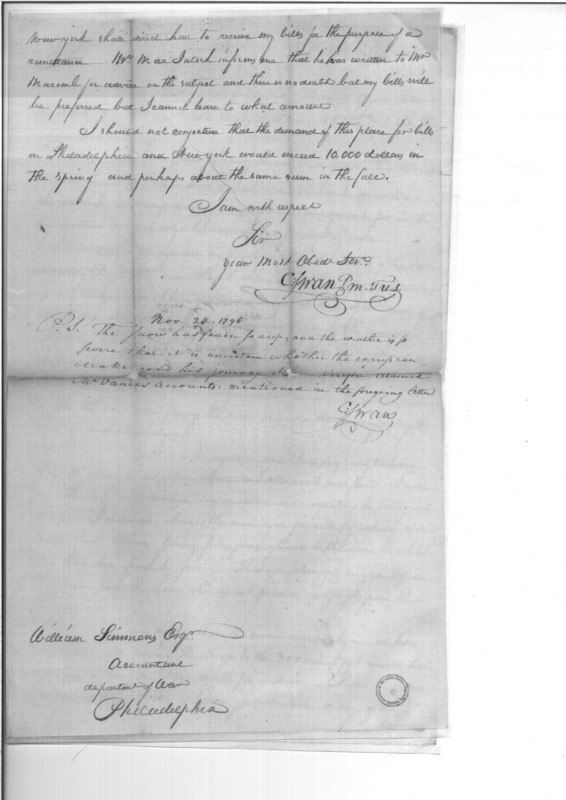 New york shall direct him to receive my bills for the purpose of a
remittance Mr. Mac Intosh informs me that he has written to Mr
Macomb for advice on the subject and there is no doubt but my bills will
be preferred but I cannot learn to what amount
I should not conjecture that the demand of this place for bills
on Philadelphia and New york would exceed 10.000 dollars in
the spring and perhaps about the same sum in the fall.
I am with respect
Sir
your Most Obedt Servt.
C Swan P.m. Trs
Nov. 24. 1798
P.S. The Snow has fallen so deep, and the weather is so
severe that it is uncertain whether the express can
make good his journey I retained
Mr Vances Accounts, mentioned in the foregoing letter
C Swan
William Simmons Esqr.
Accountant
department of War
Philadelphia